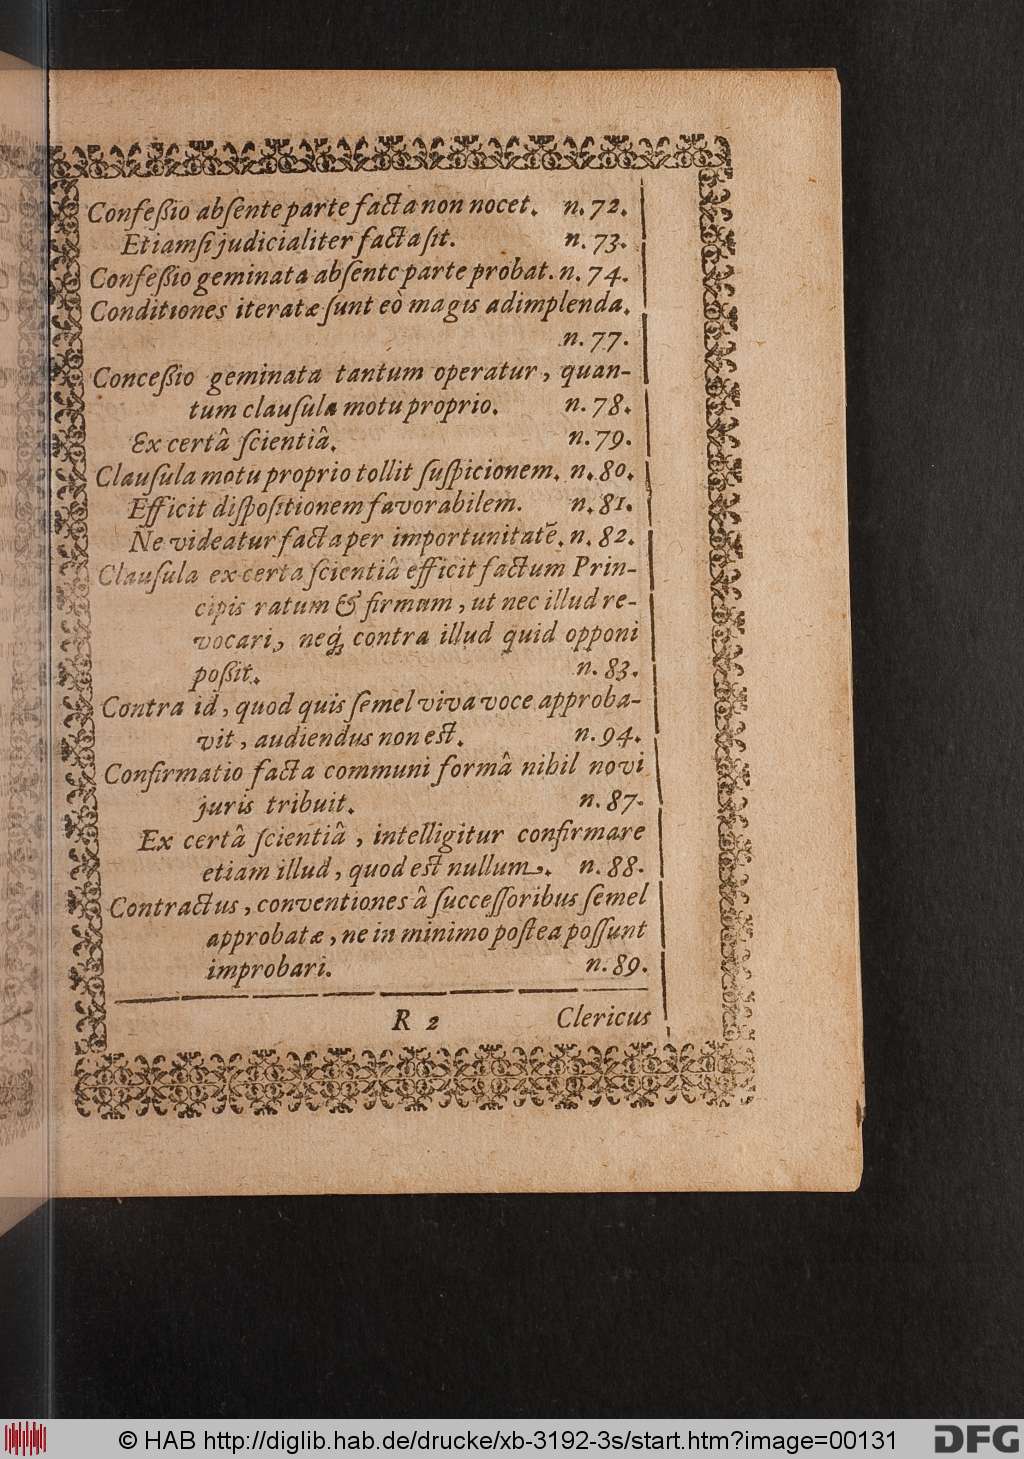 Confeßio absente parte facta non nocet. n. 72.
Etiamsi judicialiter facta sit. n. 73.
Confeßio geminata absente parte probat. n. 74.
Conditiones iteratæ sunt eò magis adimplenda.
n. 77.
Conceßio geminata tantum operatur, quan-
tum clausula motu proprio. n. 78.
Ex certâ scientiâ. n. 79.
Clausula motu proprio tollit suspicionem. n. 80.
Efficit dispositionem favorabilem. n. 81.
Ne videatur facta per importunitatẽ. n. 82.
Clausula ex certa scientiâ efficit factum Prin-
cipis ratum & firmum, ut nec illud re-
vocari, neq́; contra illud quid opponi
poßit. n. 83.
Contra id, quod quis semel viva voce approba-
vit, audiendus non est. n. 94.
Confirmatio facta communi formâ nihil novi
juris tribuit. n. 87.
Ex certâ scientiâ, intelligitur confirmare
etiam illud, quod est nullum. n. 88.
Contractus, conventiones â successoribus semel
approbatæ, ne in minimo postea possunt
improbari. n. 89.
R 2 Clericus
© HAB http://diglib.hab.de/drucke/xb-3192-3s/start.htm?image=00131
DFG